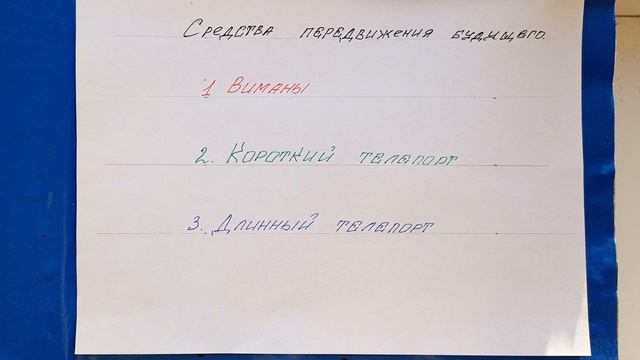 Средства передвижения будущего.
1 Виманы
2. Короткий телепорт
3. Длинный телепорт